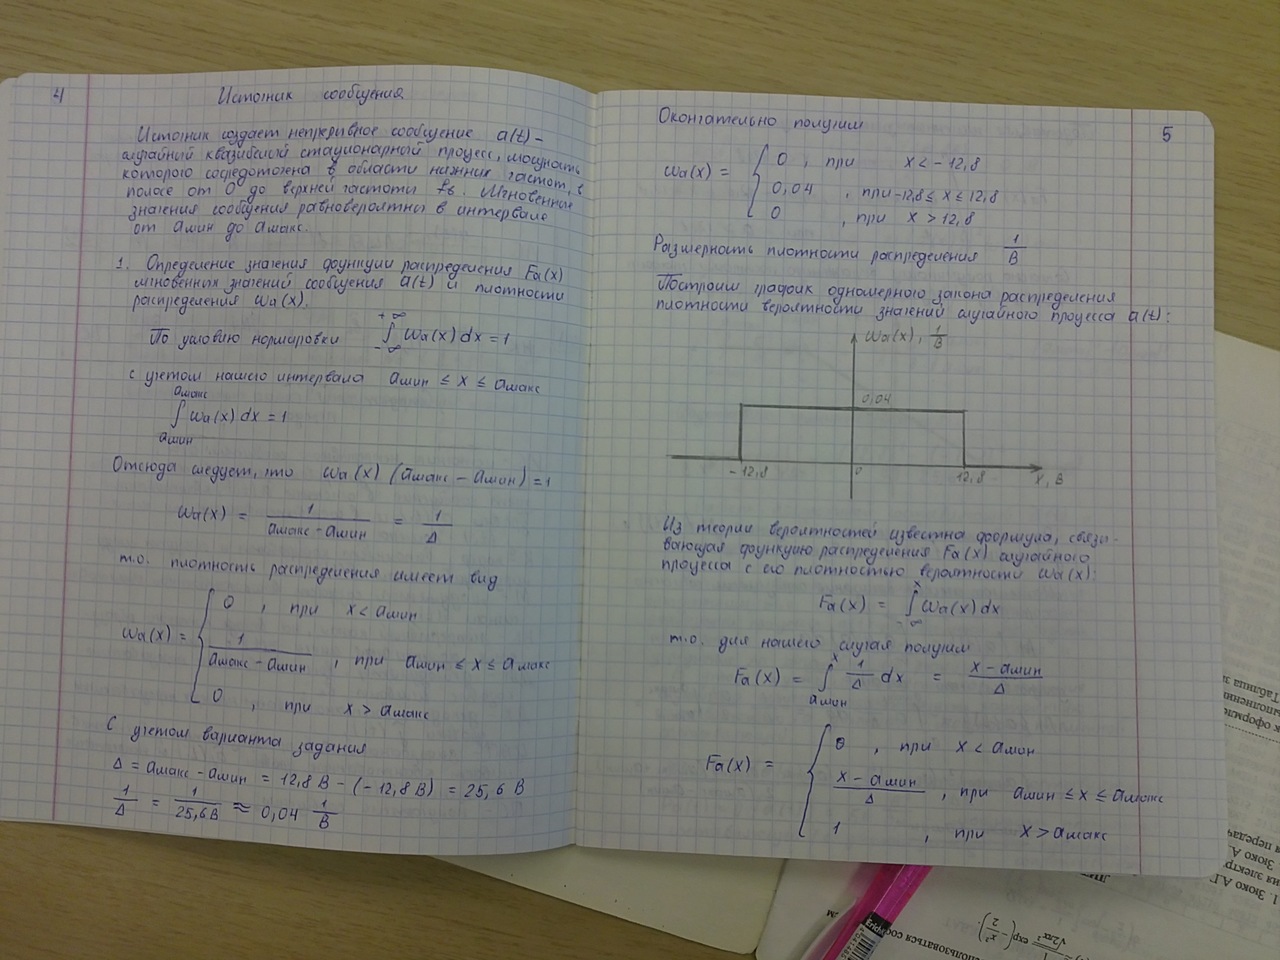 4
Источник сообщения
Источник создает непрерывное сообщение a(t) –
случайный квазибелый стационарный процесс, мощность
которого сосредоточена в области нижних частот, в
полосе от 0 до верхней частоты fв. Мгновенные
значения сообщения равновероятны в интервале
от aмин до aмакс.
1. Определение значения функции распределения Fa(x)
мгновенных значений сообщения a(t) и плотности
распределения wa(x).
По условию нормировки ∫_{-∞}^{+∞} wa(x) dx = 1
с учетом нашего интервала aмин ≤ x ≤ aмакс
∫_{aмин}^{aмакс} wa(x) dx = 1
Отсюда следует, что wa(x) (aмакс – aмин) = 1
wa(x) = 1/(aмакс - aмин) = 1/Δ
т.о. плотность распределения имеет вид
wa(x) = {
0 , при x < aмин
1/(aмакс – aмин) , при aмин ≤ x ≤ aмакс
0 , при x > aмакс
С учетом варианта задания
Δ = aмакс – aмин = 12,8 В – (– 12,8 В) = 25,6 В
1/Δ = 1/25,6В ≈ 0,04 1/В
5
Окончательно получим
wa(x) = {
0 , при x < – 12,8
0,04 , при -12,8 ≤ x ≤ 12,8
0 , при x > 12,8
Размерность плотности распределения 1/В
Построим график одномерного закона распределения
плотности вероятности значений случайного процесса a(t):
wa(x), 1/В
0,04
- 12,8 0 12,8 x, В
Из теории вероятностей известна формула, связы-
вающая функцию распределения Fa(x) случайного
процесса с его плотностью вероятности wa(x):
Fa(x) = ∫_{-∞}^{x} wa(x) dx
т.о. для нашего случая получим
Fa(x) = ∫_{aмин}^{x} 1/Δ dx = (x – aмин)/Δ
Fa(x) = {
0 , при x < aмин
(x – aмин)/Δ , при aмин ≤ x ≤ aмакс
1 , при x > aмакс
Таблица
1. Зюко А.Г.
Зюко А.
exp(-x²/2).
Erich